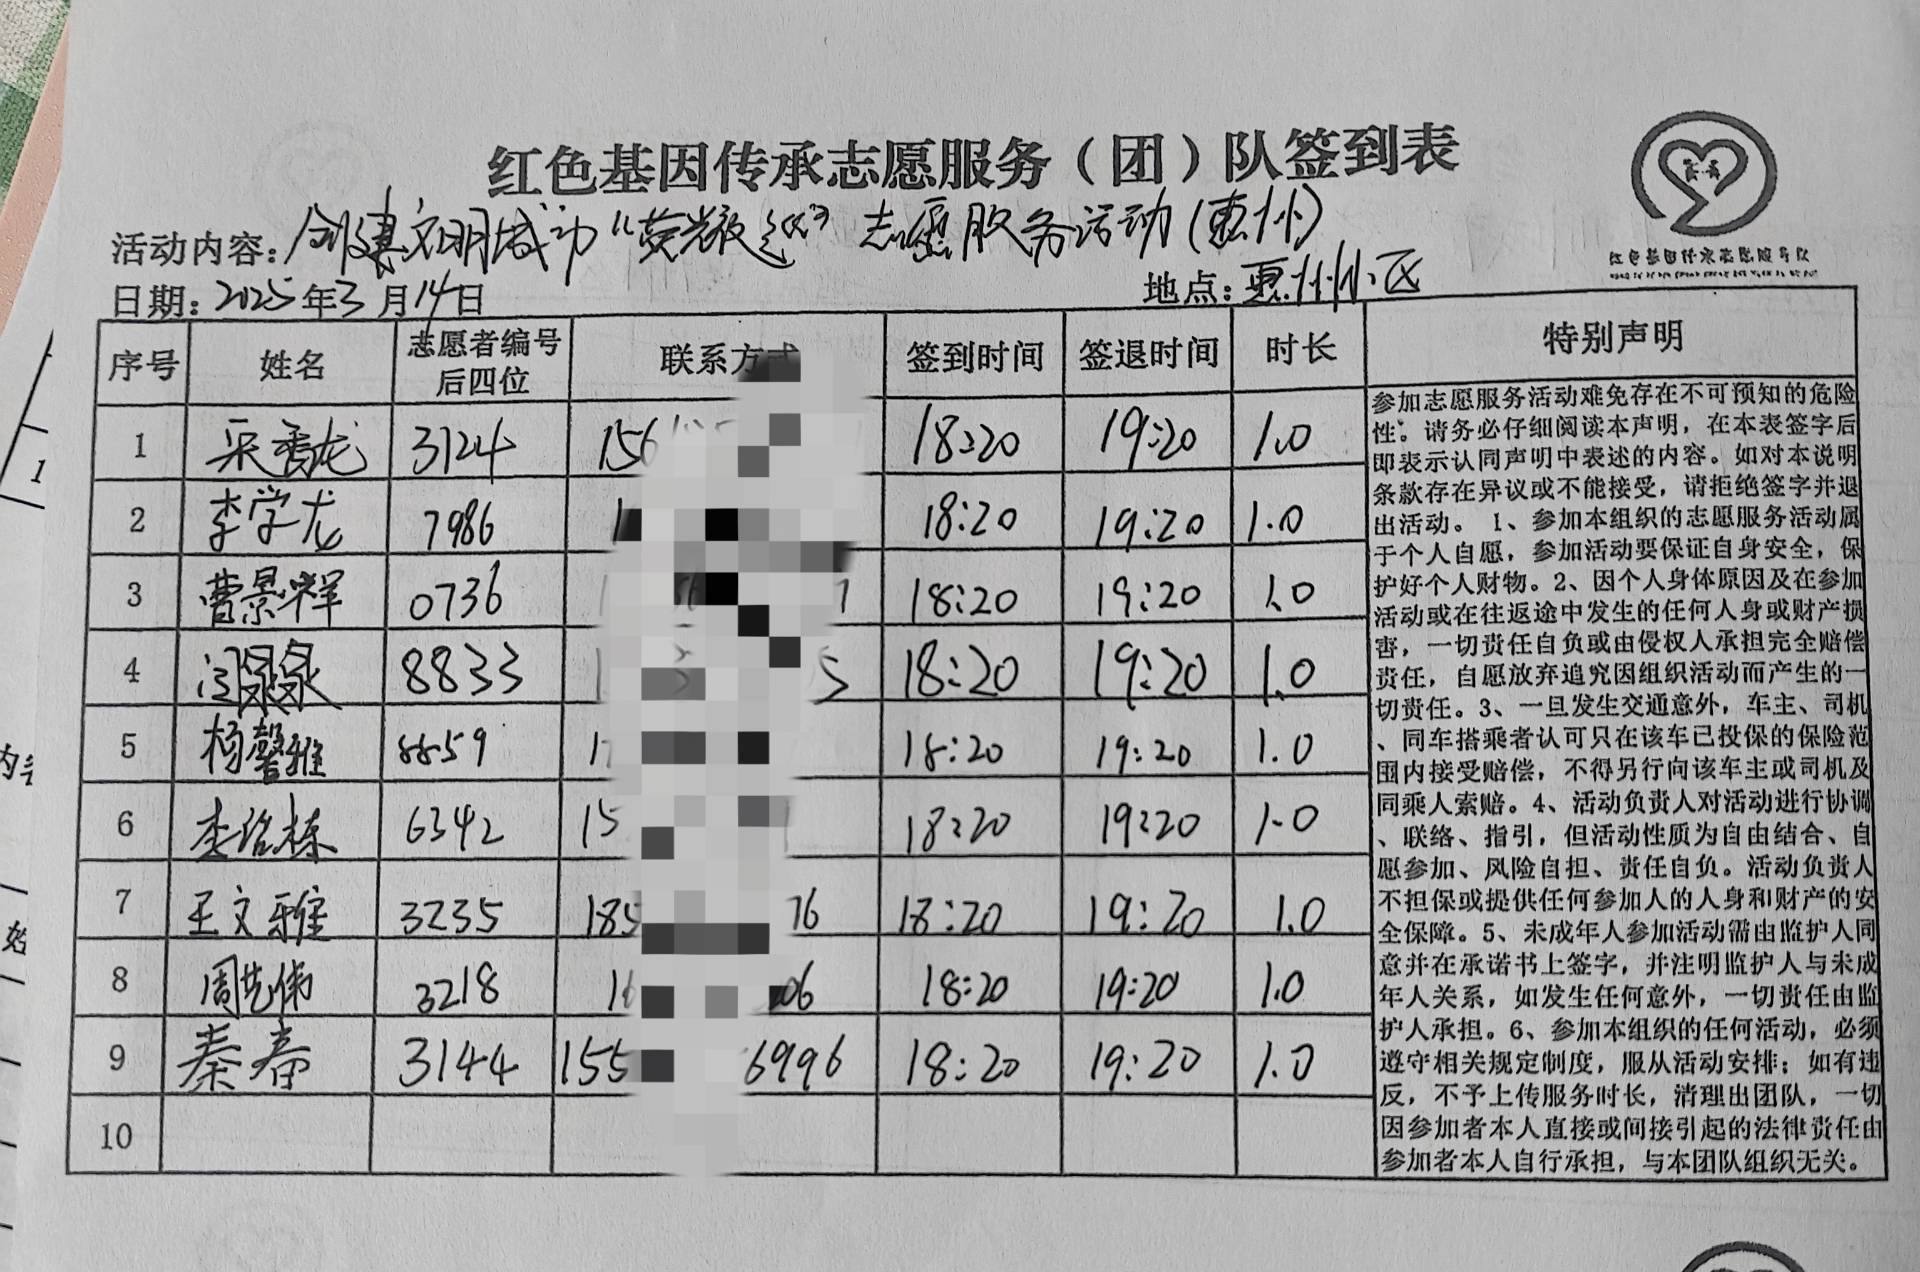 红色基因传承志愿服务（团）队签到表
活动内容：创建文明城动“荧光夜巡”志愿服务活动（惠州）
日期：2025年3月14日 地点：惠州小区
序号 姓名 志愿者编号后四位 联系方式 签到时间 签退时间 时长 特别声明
1 3124 156 18:20 19:20 1.0
2 李学龙 7986 1 18:20 19:20 1.0
3 曹景祥 0736 1 18:20 19:20 1.0
4 闫泉泉 8833 1 5 18:20 19:20 1.0
5 杨馨雅 8859 1 18:20 19:20 1.0
6 李治栋 6342 15 18:20 19:20 1.0
7 王文雅 3235 185 76 18:20 19:20 1.0
8 周先伟 3218 16 06 18:20 19:20 1.0
9 秦春 3144 155 6996 18:20 19:20 1.0
10
参加志愿服务活动难免存在不可预知的危险
性。请务必仔细阅读本声明，在本表签字后
即表示认同声明中表述的内容。如对本说明
条款存在异议或不能接受，请拒绝签字并退
出活动。 1、参加本组织的志愿服务活动属
于个人自愿，参加活动要保证自身安全，保
护好个人财物。2、因个人身体原因及在参加
活动或在往返途中发生的任何人身或财产损
害，一切责任自负或由侵权人承担完全赔偿
责任，自愿放弃追究因组织活动而产生的一
切责任。3、一旦发生交通意外，车主、司机
、同车搭乘者认可只在该车已投保的保险范
围内接受赔偿，不得另行向该车主或司机及
同乘人索赔。4、活动负责人对活动进行协调
、联络、指引，但活动性质为自由结合、自
愿参加、风险自担、责任自负。活动负责人
不担保或提供任何参加人的人身和财产的安
全保障。5、未成年人参加活动需由监护人同
意并在承诺书上签字，并注明监护人与未成
年人关系，如发生任何意外，一切责任由监
护人承担。6、参加本组织的任何活动，必须
遵守相关规定制度，服从活动安排；如有违
反，不予上传服务时长，清理出团队，一切
因参加者本人直接或间接引起的法律责任由
参加者本人自行承担，与本团队组织无关。